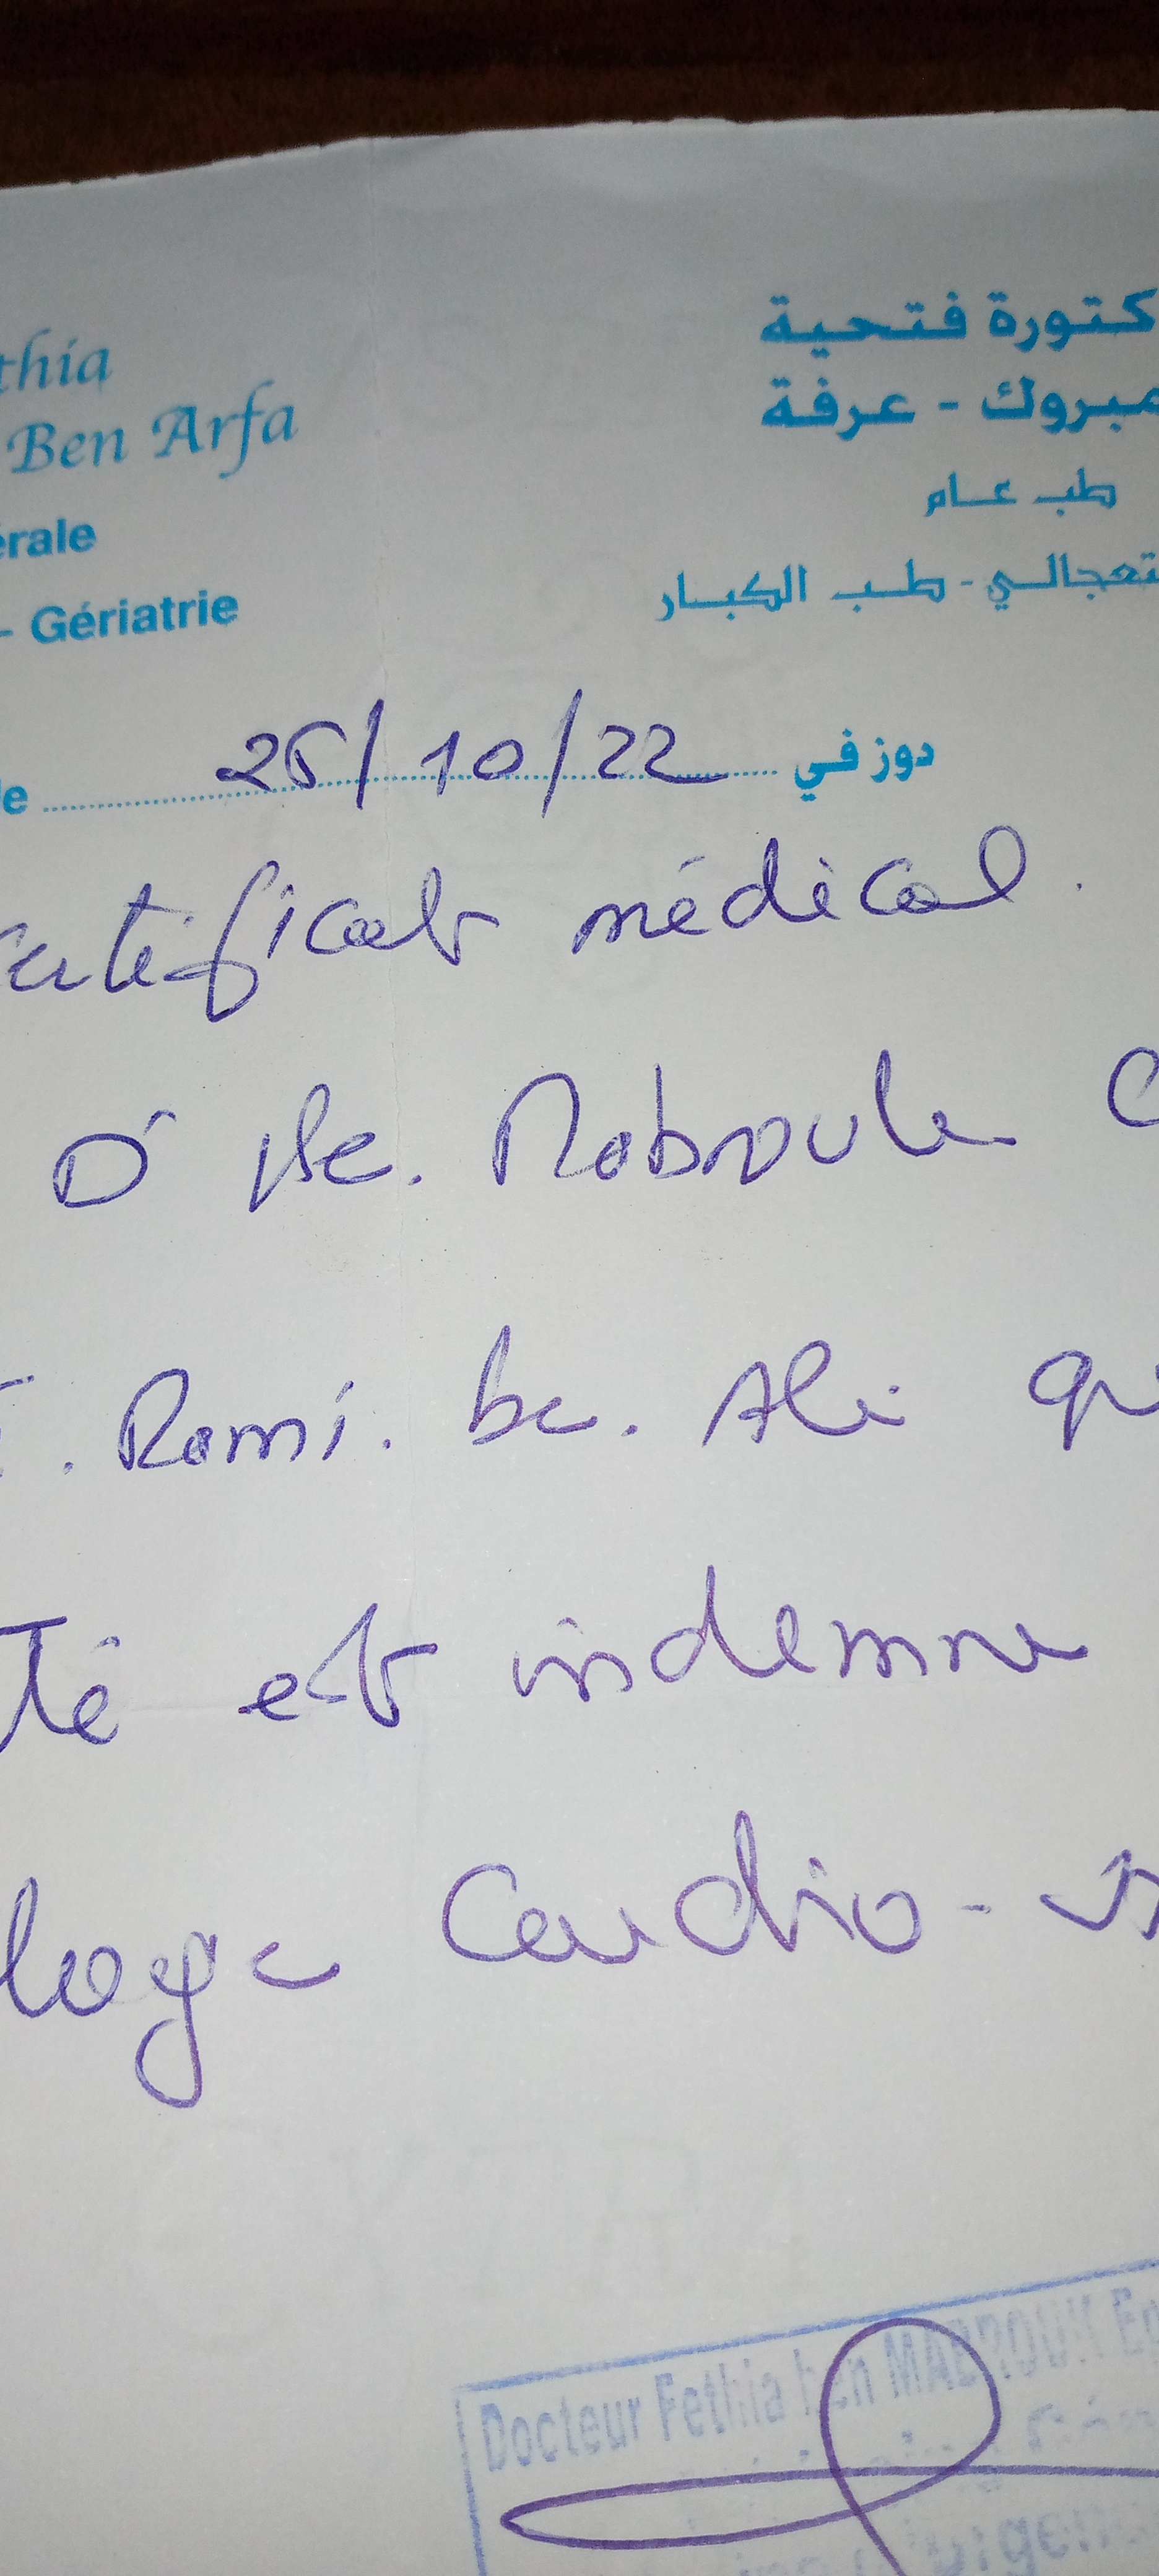 thia
Ben Arfa
érale
- Gériatrie
كتورة فتحية
مبروك - عرفة
طب عام
تعجالي - طب الكبار
le 25/10/22 دوز في
certificat médical.
Dr Be. Mabrouk
. Rami. be. Ali qui
té est indemne
logie Cardio-
Docteur Fethia ben MABROUK